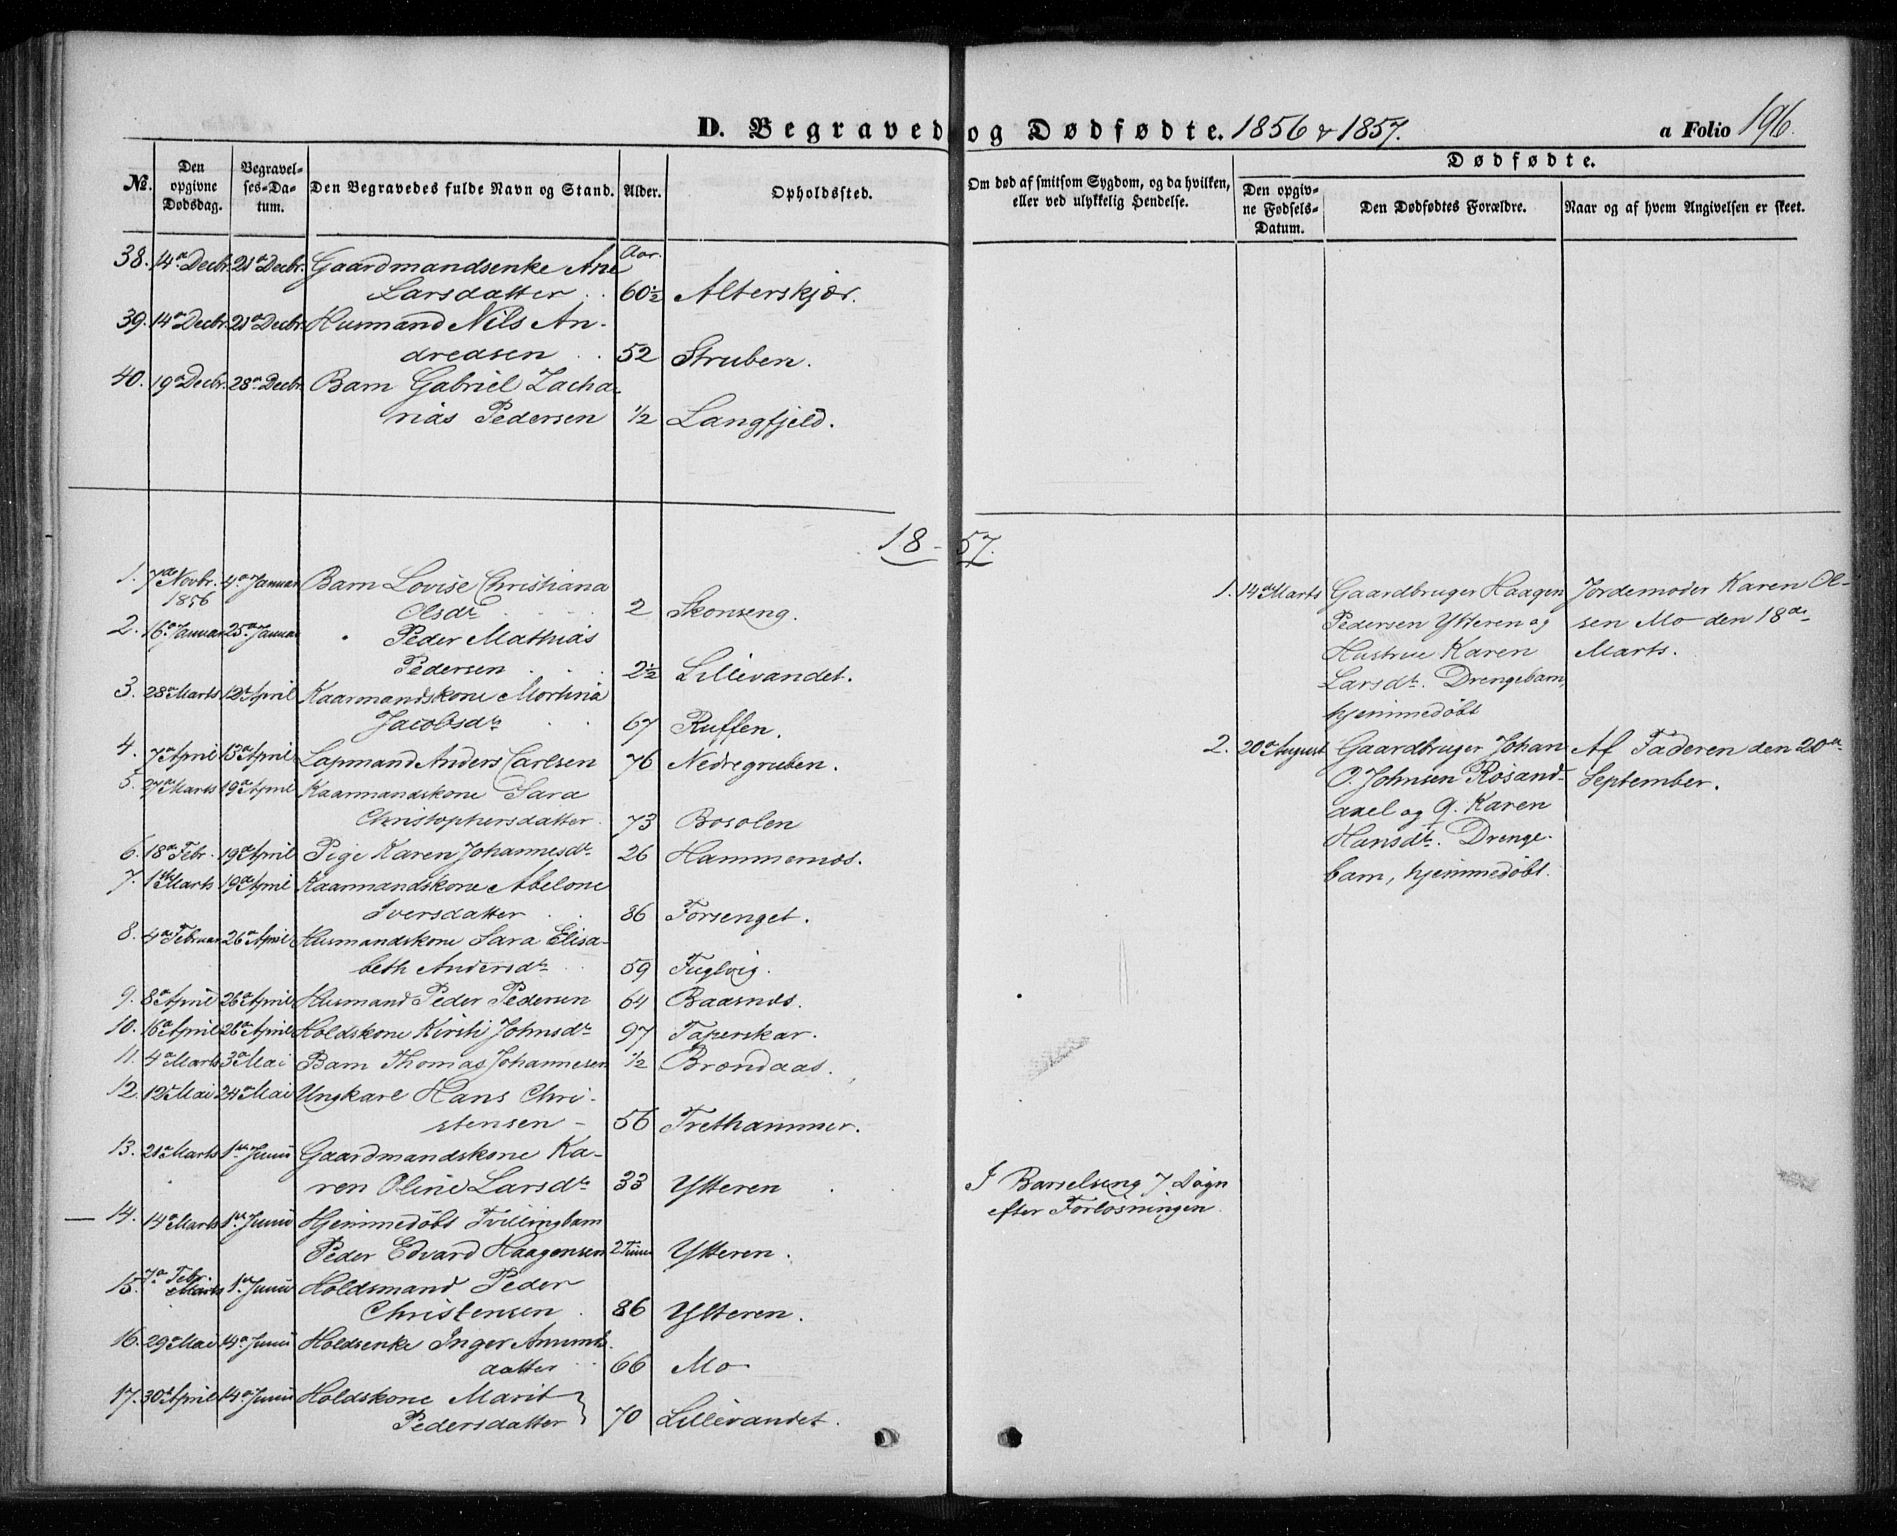 D. Begravede og Dødfødte. 1856 & 1857.
a Folio 196.
No.
Den opgivne Dødsdag.
Begravelses-Datum.
Den Begravedes fulde Navn og Stand.
Alder.
Opholdssted.
Om død af smitsom Sygdom, og da hvilken,
eller ved ulykkelig Hendelse.
Dødfødte.
Den opgivne Fødsels-Datum.
Den Dødfødtes Forældre.
Naar og af hvem Angivelsen er skeet.
38. 14de Decbr. 21de Decbr. Gaardmandsenke Ane Aar.
Larsdatter 60½ Alterskjær.
39. 14de Decbr. 21de Decbr. Husmand Nils An-
dreasen 52 Struben.
40. 19de Decbr. 28de Decbr. Barn Gabriel Zacha-
rias Pedersen ½ Langfjeld.
18-57.
1. 7de Novbr. 4de Januar Barn Lovise Christiana
1856 Olsdr 2 Skonseng.
2. 16de Januar 25de Januar " Peder Mathias
Pedersen 2½ Lillevandet.
3. 28de Marts 12te April Kaarmandskone Mortina
Jacobsdr 67 Ruffen.
4. 7de April 13de April Lapmand Anders Carlsen 76 Nedregruben.
5. 27de Marts 19de April Kaarmandskone Sara
Christophersdatter 73 Bosolen
6. 18de Febr. 19de April Pige Karen Johannesdr 26 Hammernæs.
7. 1ste Marts 19de April Kaarmandskone Abelone
Iversdatter 86 Forsenget.
8. 4de Februar 26de April Husmandskone Sara Elisa-
beth Andersdr 59 Fuglvig.
9. 8de April 26de April Husmand Peder Pedersen 64 Baasnæs.
10. 16de April 26de April Holdskone Kirsti Johnsdr 97 Taperskar.
11. 4de Marts 3de Mai Barn Thomas Johannesen ½ Brændaas.
12. 12te Mai 24de Mai Ungkarl Hans Chri-
stensen - 56 Trethammer.
13. 21de Marts 1ste Junii Gaardmandskone Ka-
ren Oline Larsdr 33 Ytteren I Barselseng 7 Døgn
efter Forløsningen.
14. 14de Marts 1ste Junii Hjemmedøbt Tvillingbarn
Peder Edvard Haagensen 2 Timer Ytteren.
15. 7de Febr. Marts 1ste Junii Holdsmand Peder
Christensen 86 Ytteren.
16. 29de Mai 14de Junii Holdsenke Inger Amunds
datter 66 Mo
17. 30te April 14de Junii Holdskone Marit
Pedersdatter 70 Lillevandet.
1. 14de Marts Gaardbruger Haagen
Pedersen Ytteren og
Hustrue Karen
Larsdr. Drengebarn,
hjemmedøbt
Jordemoder Karen Ol-
sen Mo den 18de
Marts.
2. 20de August Gaardbruger Johan
O. Johnsen Røsand-
axel og Q. Karen
Hansdr. Drenge-
barn, hjemmedøbt.
Af Faderen den 20de
September.